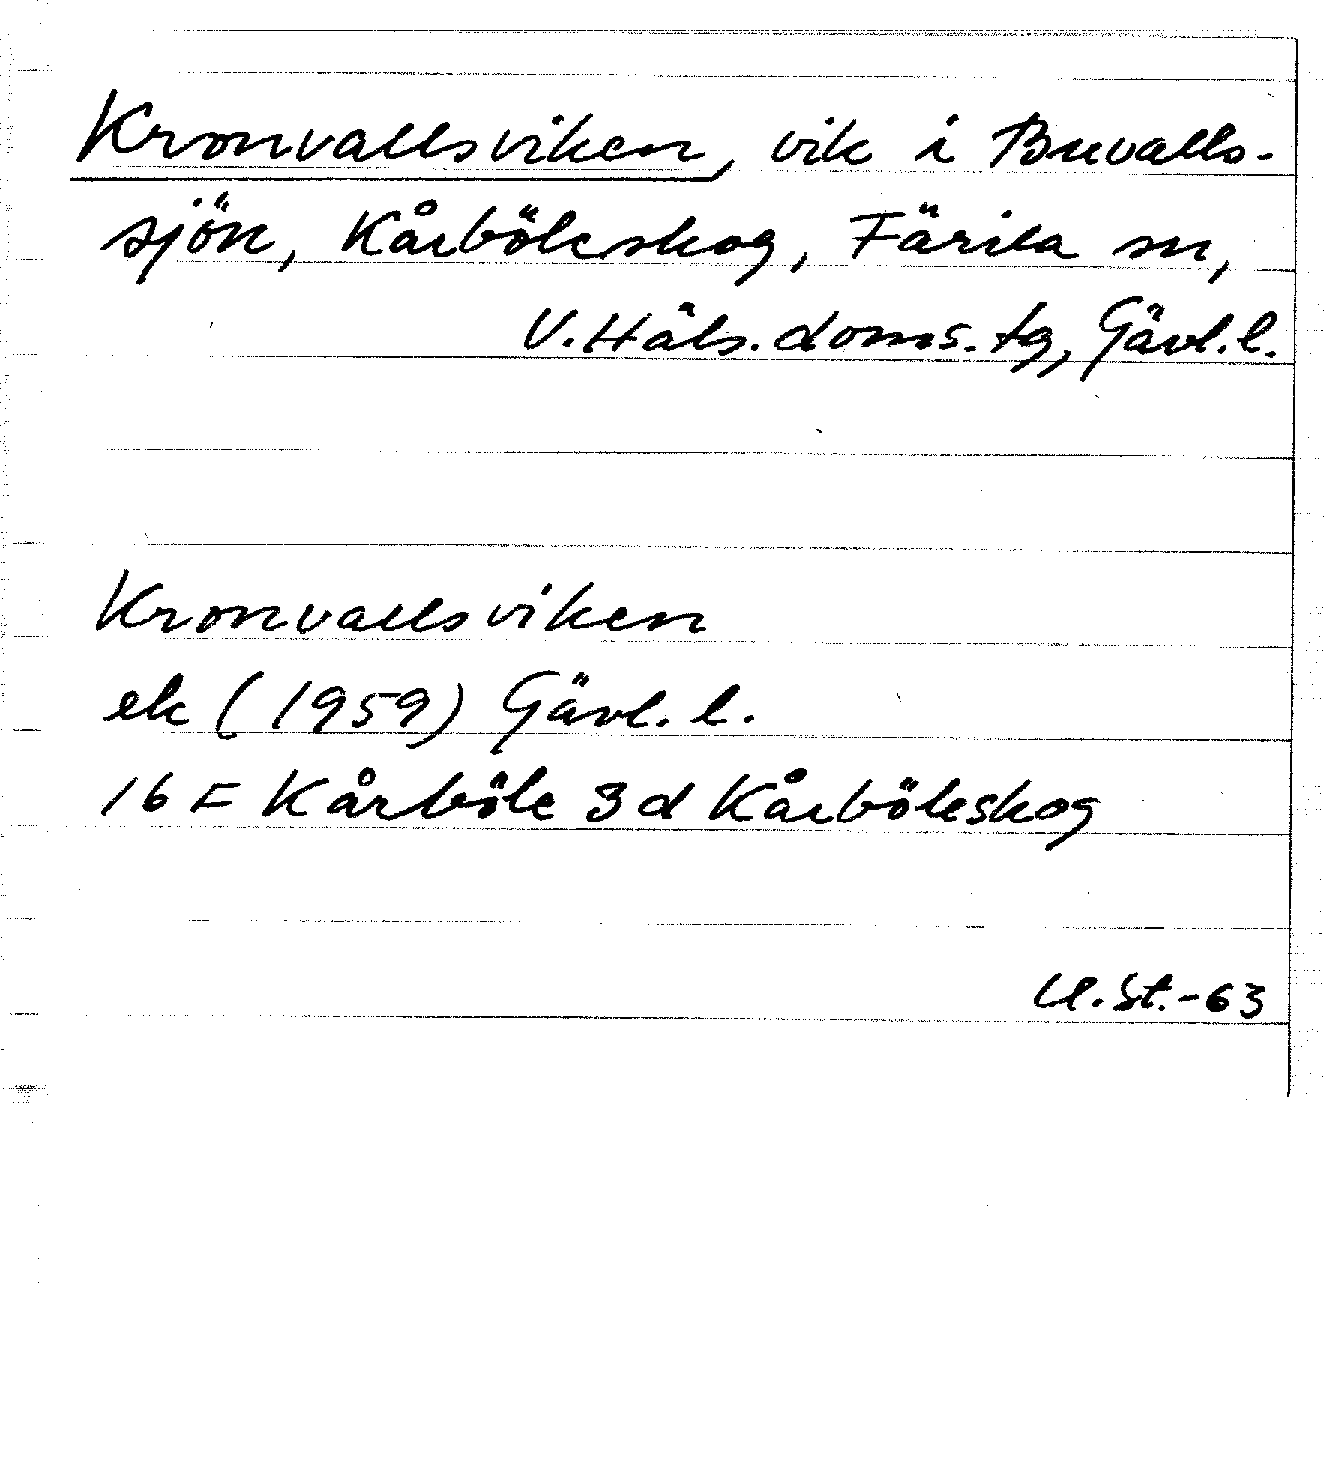 Kronvallsviken, vik i Buvalls-
sjön, Kårböleskog, Färila sn,
V. Häls. doms. tg, Gävl. l.
Kronvallsviken
ek (1959) Gävl. l.
16 F Kårböle 3d Kårböleskog
U. St. -63